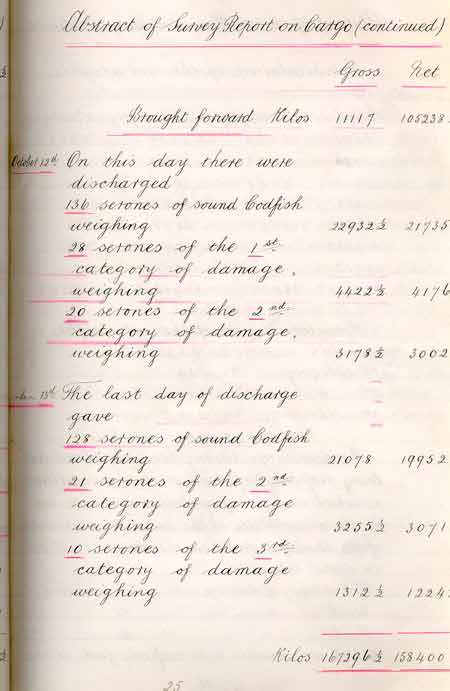 Abstract of Survey Report on Cargo (continued)
Gross Net
Brought forward Kilos 111117 105238
October 12th On this day there were
discharged
136 serones of sound Codfish
weighing 22932½ 21735
28 serones of the 1st
category of damage,
weighing 4422½ 4176
20 serones of the 2nd
category of damage,
weighing 3178½ 3002
-"- 13th The last day of discharge
gave
128 serones of sound Codfish
weighing 21078 19952
21 serones of the 2nd
category of damage
weighing 3255½ 3071
10 serones of the 3rd
category of damage
weighing 1312½ 1224
Kilos 167296½ 158400
25